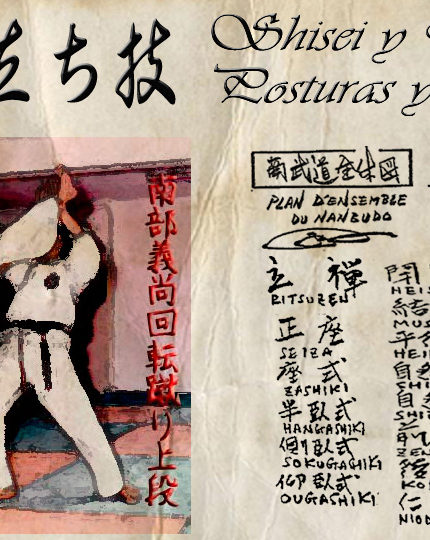 立ち技
Shisei y
Posturas y
南部義尚回転蹴り上段
南武道全体図
PLAN D'ENSEMBLE
DU NANBUDO
立禅
RITSUZEN
正座
SEIZA
座式
ZASHIKI
半臥式
HANGASHIKI
側臥式
SOKUGASHIKI
仰臥式
OUGASHIKI
開
HEIS
結
MUS
平
HEI
自
SHI
自
SHIZ
前
ZEN
後
KO
仁
NIO